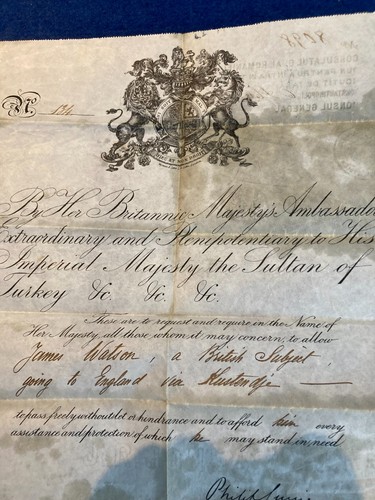 No. 134
By Her Britannic Majesty's Ambassador
Extraordinary and Plenipotentiary to His
Imperial Majesty the Sultan of
Turkey &c. &c. &c.
These are to request and require in the Name of
Her Majesty, all those whom it may concern, to allow
James Watson, a British Subject
going to England via Kustendje —
to pass freely without let or hindrance and to afford him every
assistance and protection of which he may stand in need